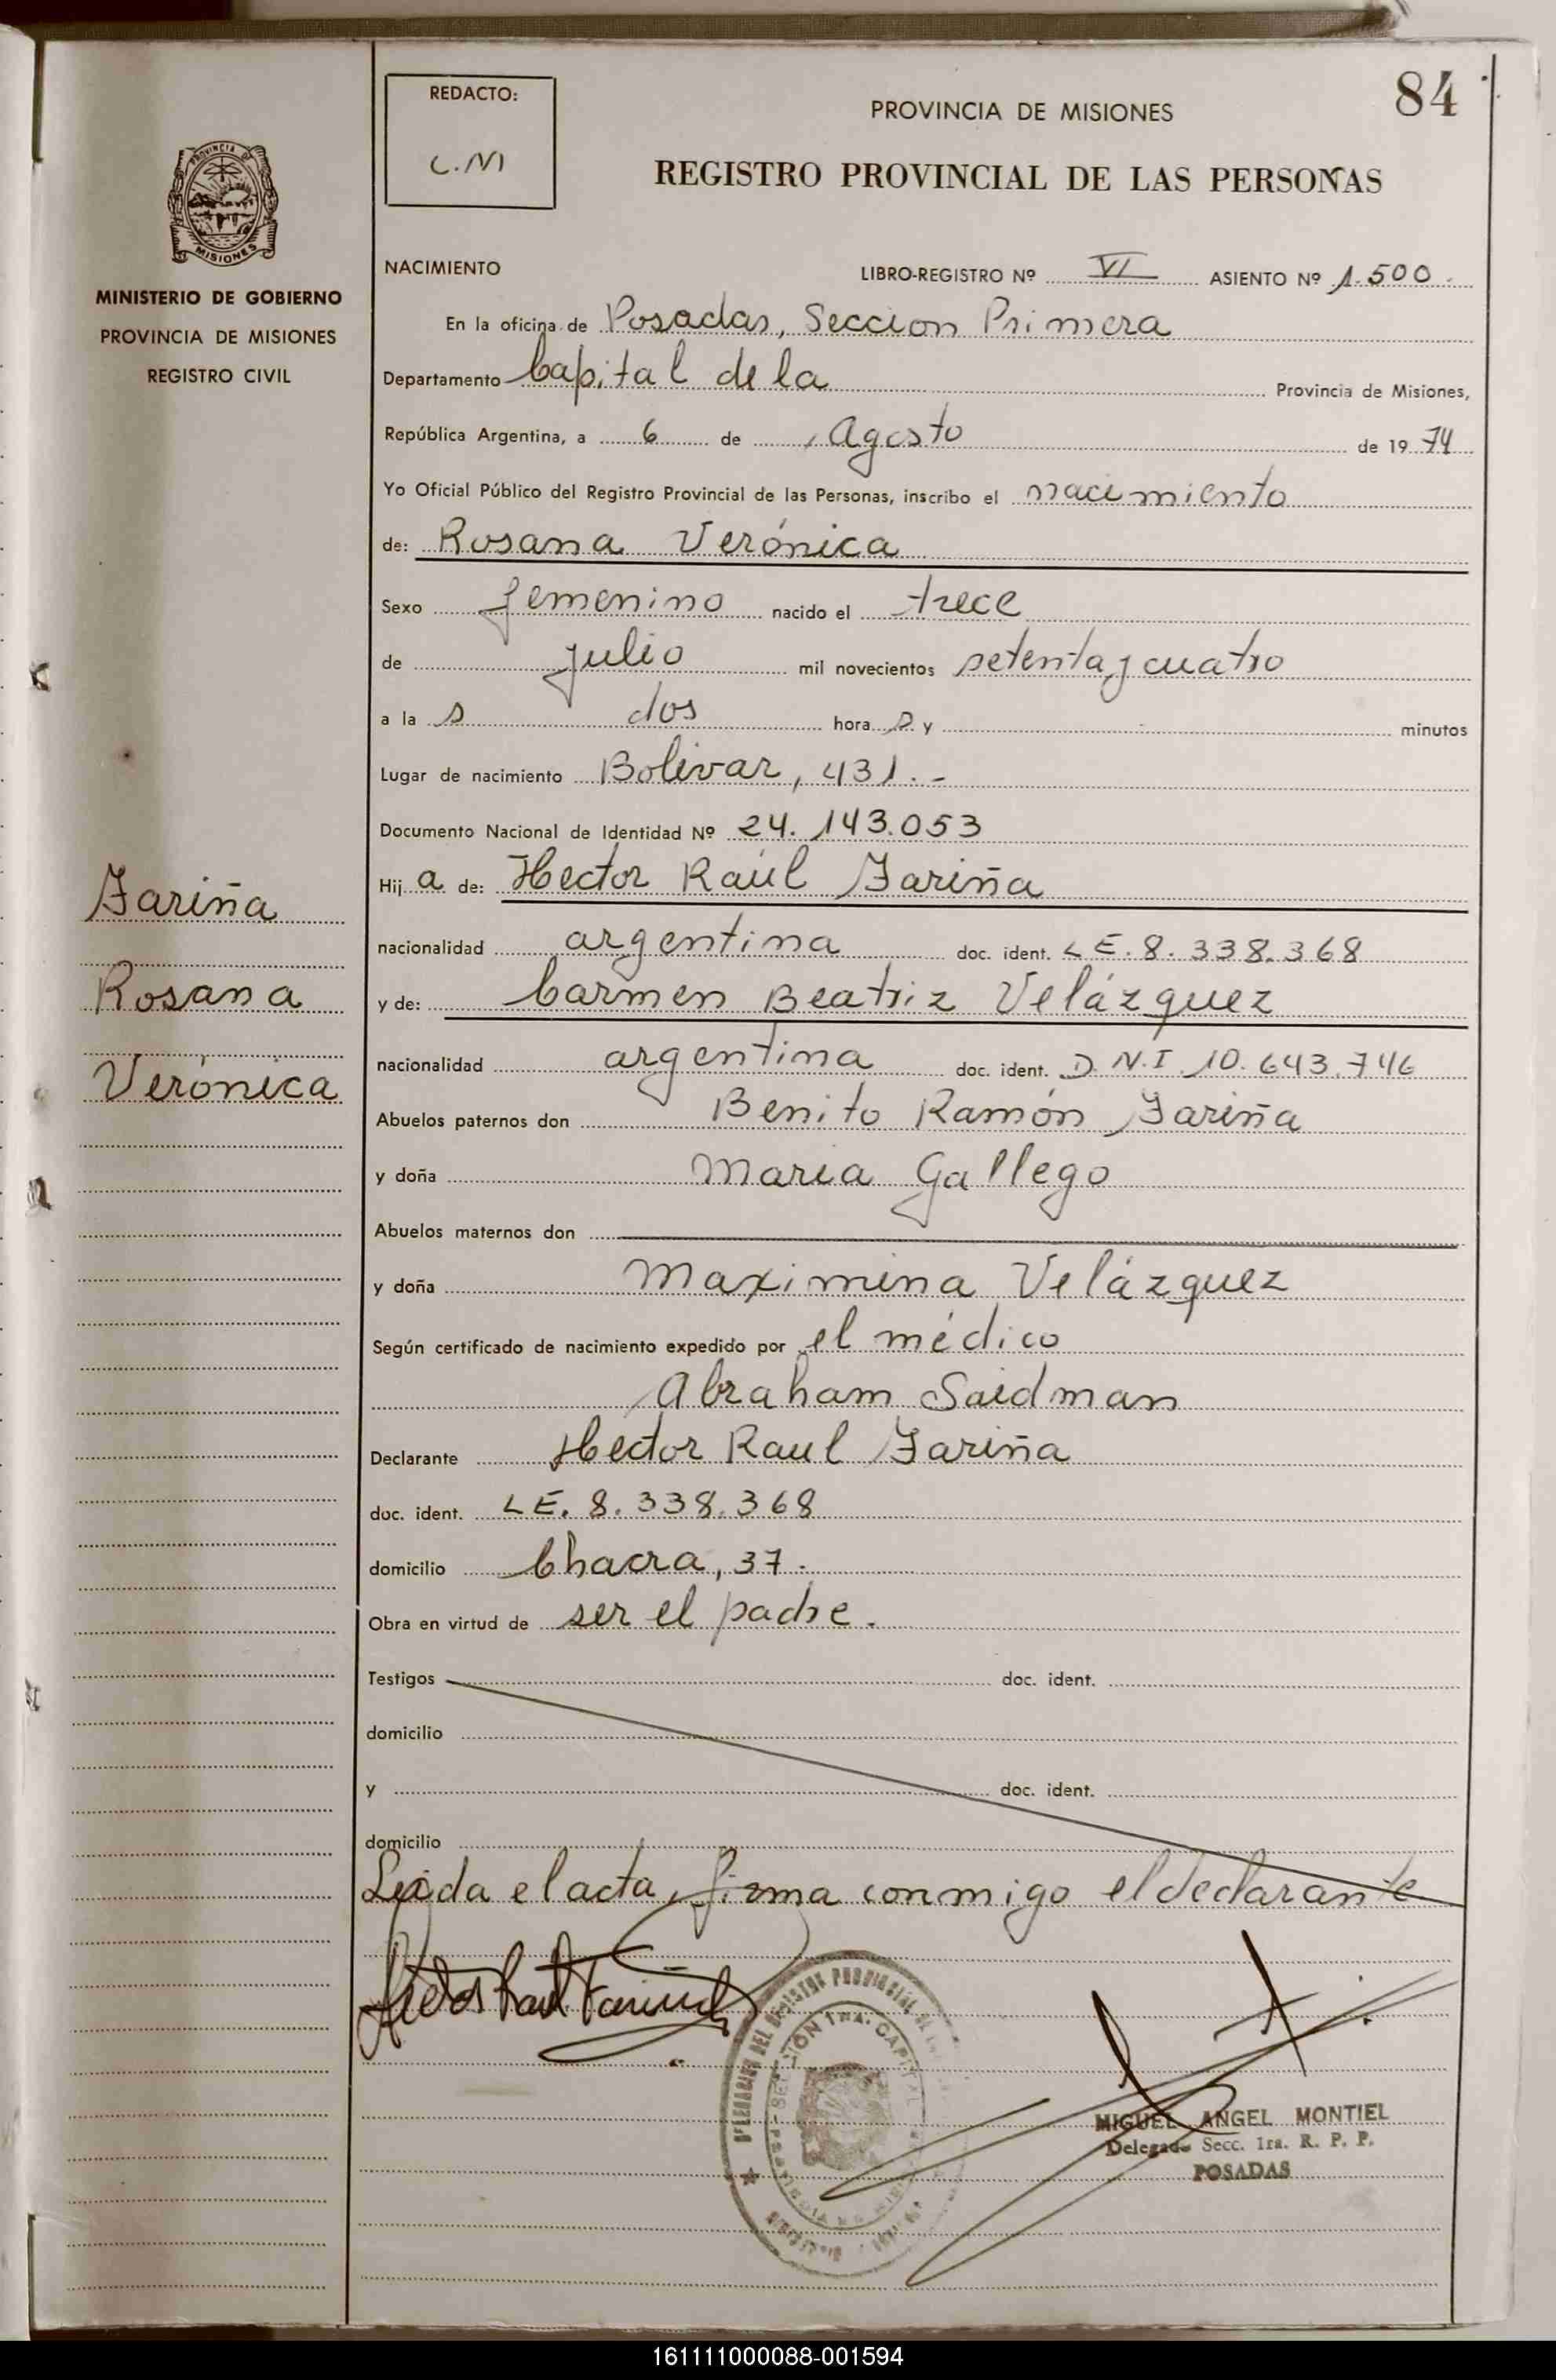 84
REDACTO:
C.M
PROVINCIA DE MISIONES
REGISTRO PROVINCIAL DE LAS PERSONAS
PROVINCIA DE
MISIONES
MINISTERIO DE GOBIERNO
PROVINCIA DE MISIONES
REGISTRO CIVIL
NACIMIENTO LIBRO-REGISTRO Nº VI ASIENTO Nº 1.500.
En la oficina de Posadas, Seccion Primera
Departamento Capital de la Provincia de Misiones,
República Argentina, a 6 de Agosto de 1974
Yo Oficial Público del Registro Provincial de las Personas, inscribo el nacimiento
de: Rosana Verónica
Sexo femenino nacido el trece
de julio mil novecientos setenta y cuatro
a la s dos hora s y minutos
Lugar de nacimiento Bolivar, 431.-
Documento Nacional de Identidad Nº 24.143.053
Hij a de: Hector Raúl Fariña
nacionalidad argentina doc. ident. L E. 8.338.368
y de: Carmen Beatriz Velázquez
nacionalidad argentina doc. ident. D.N.I. 10.643.746
Abuelos paternos don Benito Ramón Fariña
y doña Maria Gallego
Abuelos maternos don
y doña Maximina Velázquez
Según certificado de nacimiento expedido por el médico
Abraham Saidman
Declarante Hector Raul Fariña
doc. ident. L E. 8.338.368
domicilio Chacra, 37.
Obra en virtud de ser el padre.
Testigos doc. ident.
domicilio
y doc. ident.
domicilio
Leida el acta, firma conmigo el declarante
Fariña
Rosana
Verónica
Hector Raul Fariña
MIGUEL ANGEL MONTIEL
Delegado Secc. 1ra. R. P. P.
POSADAS
161111000088-001594